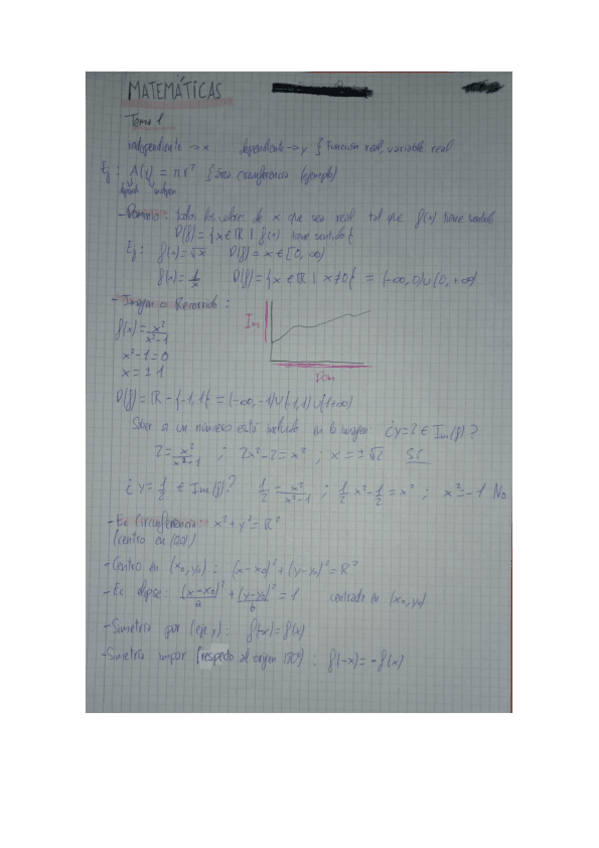 MATEMÁTICAS
Tema 1
independiente → x dependiente → y { Función real, variable real
Ej: A(r) = πr² { área circunferencia (ejemplo)
- Dominio: todos los valores de x que sea real tal que f(x) tiene sentido
D(f) = {x ∈ R | f(x) tiene sentido}
Ej: f(x) = √x D(f) = x ∈ [0, ∞)
f(x) = 1/x D(f) = {x ∈ R | x ≠ 0} = (-∞, 0) ∪ (0, +∞)
- Imagen o Recorrido:
Im
f(x) = x²/(x²-1)
x² - 1 = 0
x = ± 1
Dom
D(f) = R - {-1, 1} = (-∞, -1) ∪ (-1, 1) ∪ (1, +∞)
Saber si un número está incluido en la imagen: ¿y = 2 ∈ Im(f)?
2 = x²/(x²-1) ; 2x² - 2 = x² ; x = ±√2 Sí
¿y = 1/2 ∈ Im(f)? 1/2 = x²/(x²-1) ; 1/2 x² - 1/2 = x² ; x² = -1 No
- Ec Circunferencia: x² + y² = R²
(centro en (0,0))
- Centro en (x₀, y₀) : (x-x₀)² + (y-y₀)² = R²
- Ec elipse: (x-x₀)²/a + (y-y₀)²/b = 1 centrada en (x₀, y₀)
- Simetría par (eje y): f(-x) = f(x)
- Simetría impar (respecto al origen 180º) : f(-x) = -f(x)